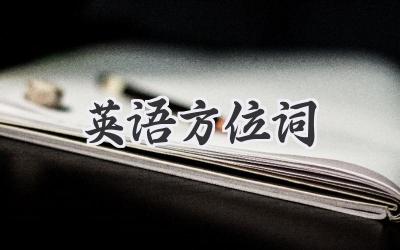 英语方位词